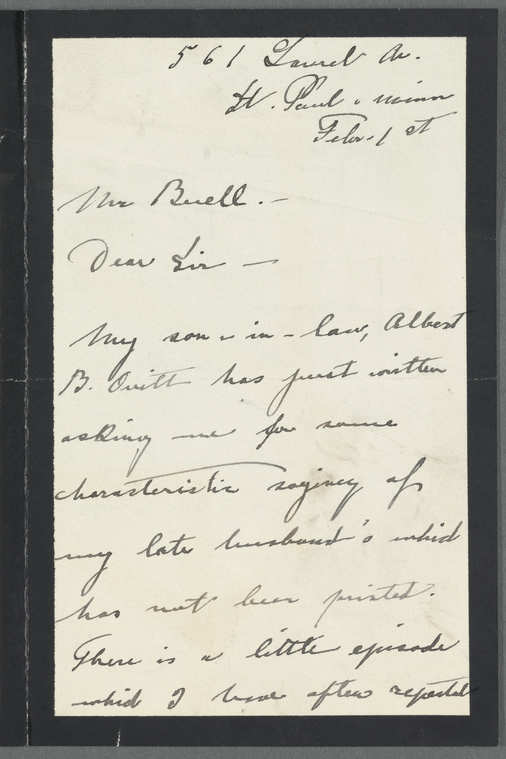 561 Laurel Av.
St. Paul, Minn
Febr. 1st
Mr Buell. -
Dear Sir -
My son-in-law, Albert
B. Ovitt has just written
asking me for some
characteristic sayings of
my late husband's which
has not been printed.
There is a little episode
which I have often repeated